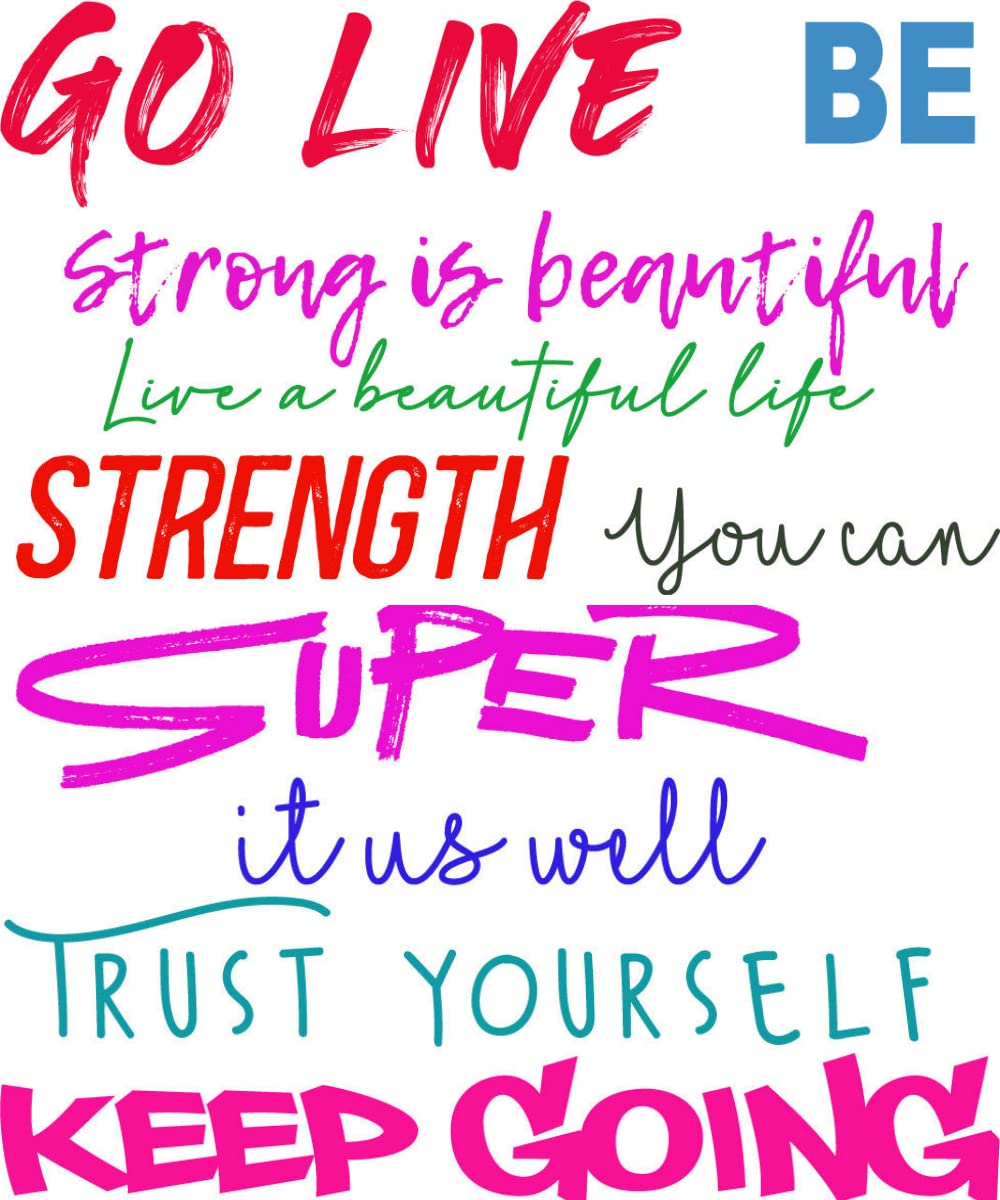 GO LIVE BE
Strong is beautiful
Live a beautiful life
STRENGTH You can
SUPER
it us well
TRUST YOURSELF
KEEP GOING